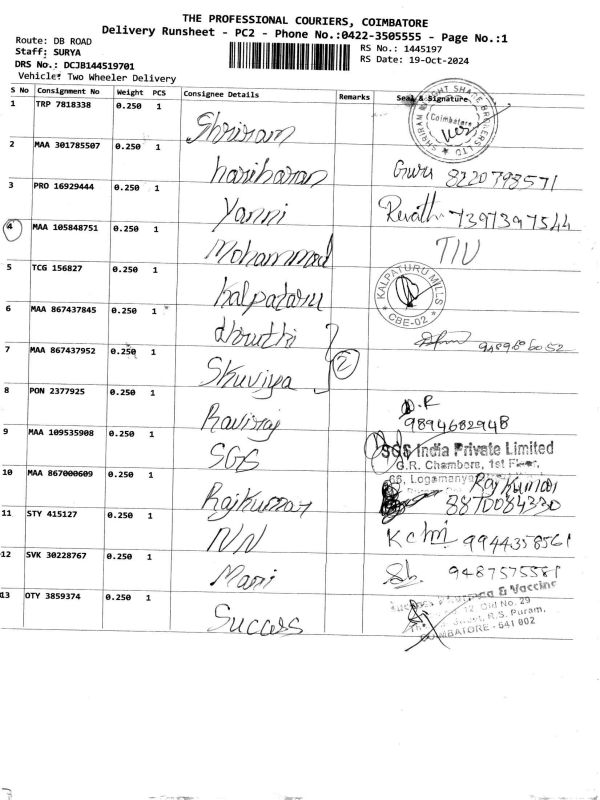 THE PROFESSIONAL COURIERS, COIMBATORE
Delivery Runsheet - PC2 - Phone No.:0422-3505555 - Page No.:1
Route: DB ROAD
Staff: SURYA
DRS No.: DCJB144519701
Vehicle: Two Wheeler Delivery
RS No.: 1445197
RS Date: 19-Oct-2024
S No Consignment No Weight PCS Consignee Details Remarks Seal & Signature
1 TRP 7818338 0.250 1 Shriram
SHRIRAM INSIGHT SHARE BROKERS LTD
Coimbatore
2 MAA 301785507 0.250 1 hariharan Guru 8220798571
3 PRO 16929444 0.250 1 Yanni Revathi 7397397544
4 MAA 105848751 0.250 1 Mohammed
5 TCG 156827 0.250 1 Kalpataru
KALPATURU MILLS
CBE-02
6 MAA 867437845 0.250 1 dhruthi
7 MAA 867437952 0.250 1 Skuviya 2
8 PON 2377925 0.250 1 Raviraj D.R
9894682948
9 MAA 109535908 0.250 1 SGS
SGS India Private Limited
G.R. Chambers, 1st Floor,
10 MAA 867000609 0.250 1 Rajkumar Raj Kumar
8870084330
11 STY 415127 0.250 1 NN 9944358561
12 SVK 30228767 0.250 1 Mani 9487575581
13 OTY 3859374 0.250 1 Success
& Vaccine
12 Old No. 29
R.S. Puram,
COIMBATORE - 641 002